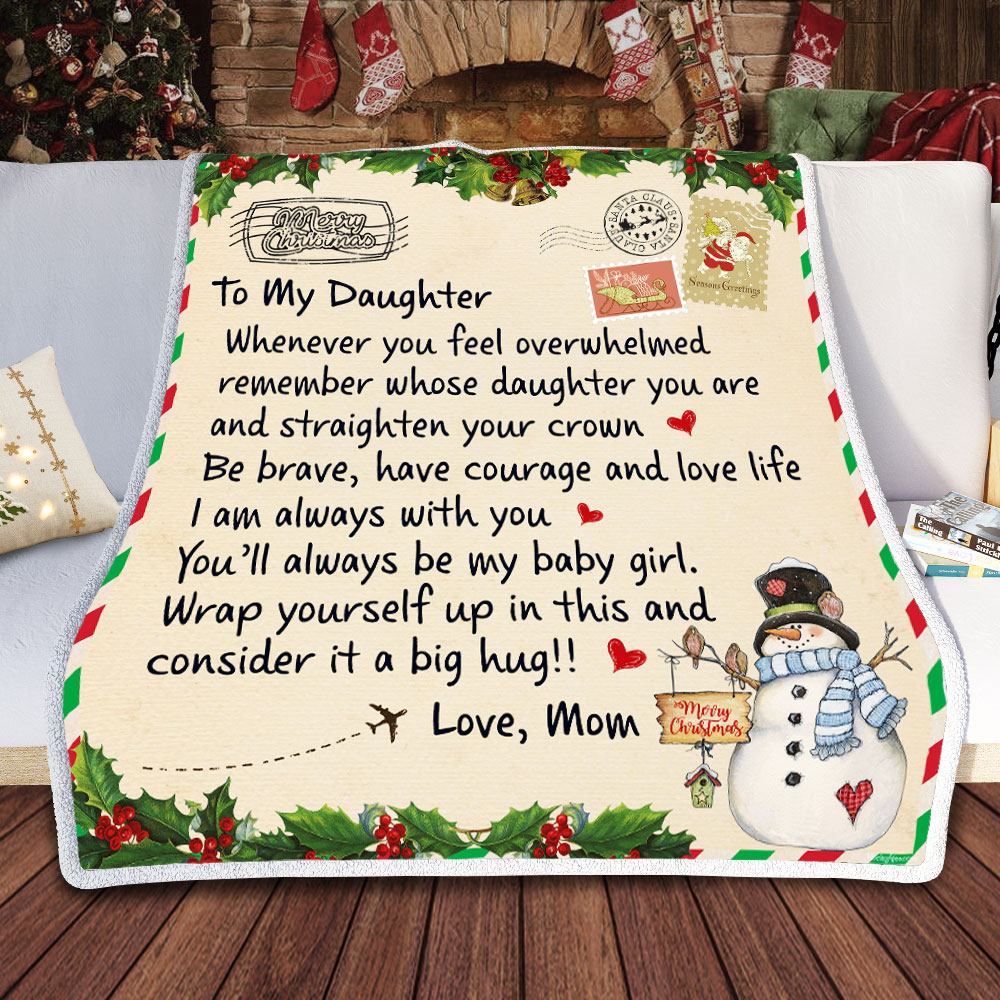 Merry
Christmas
SANTA CLAUS
SANTA CLAUS
Seasons Greetings
To My Daughter
Whenever you feel overwhelmed
remember whose daughter you are
and straighten your crown
Be brave, have courage and love life
I am always with you
You'll always be my baby girl.
Wrap yourself up in this and
consider it a big hug!!
Love, Mom
Merry
Christmas
The
Calling
the
Calling
Paul